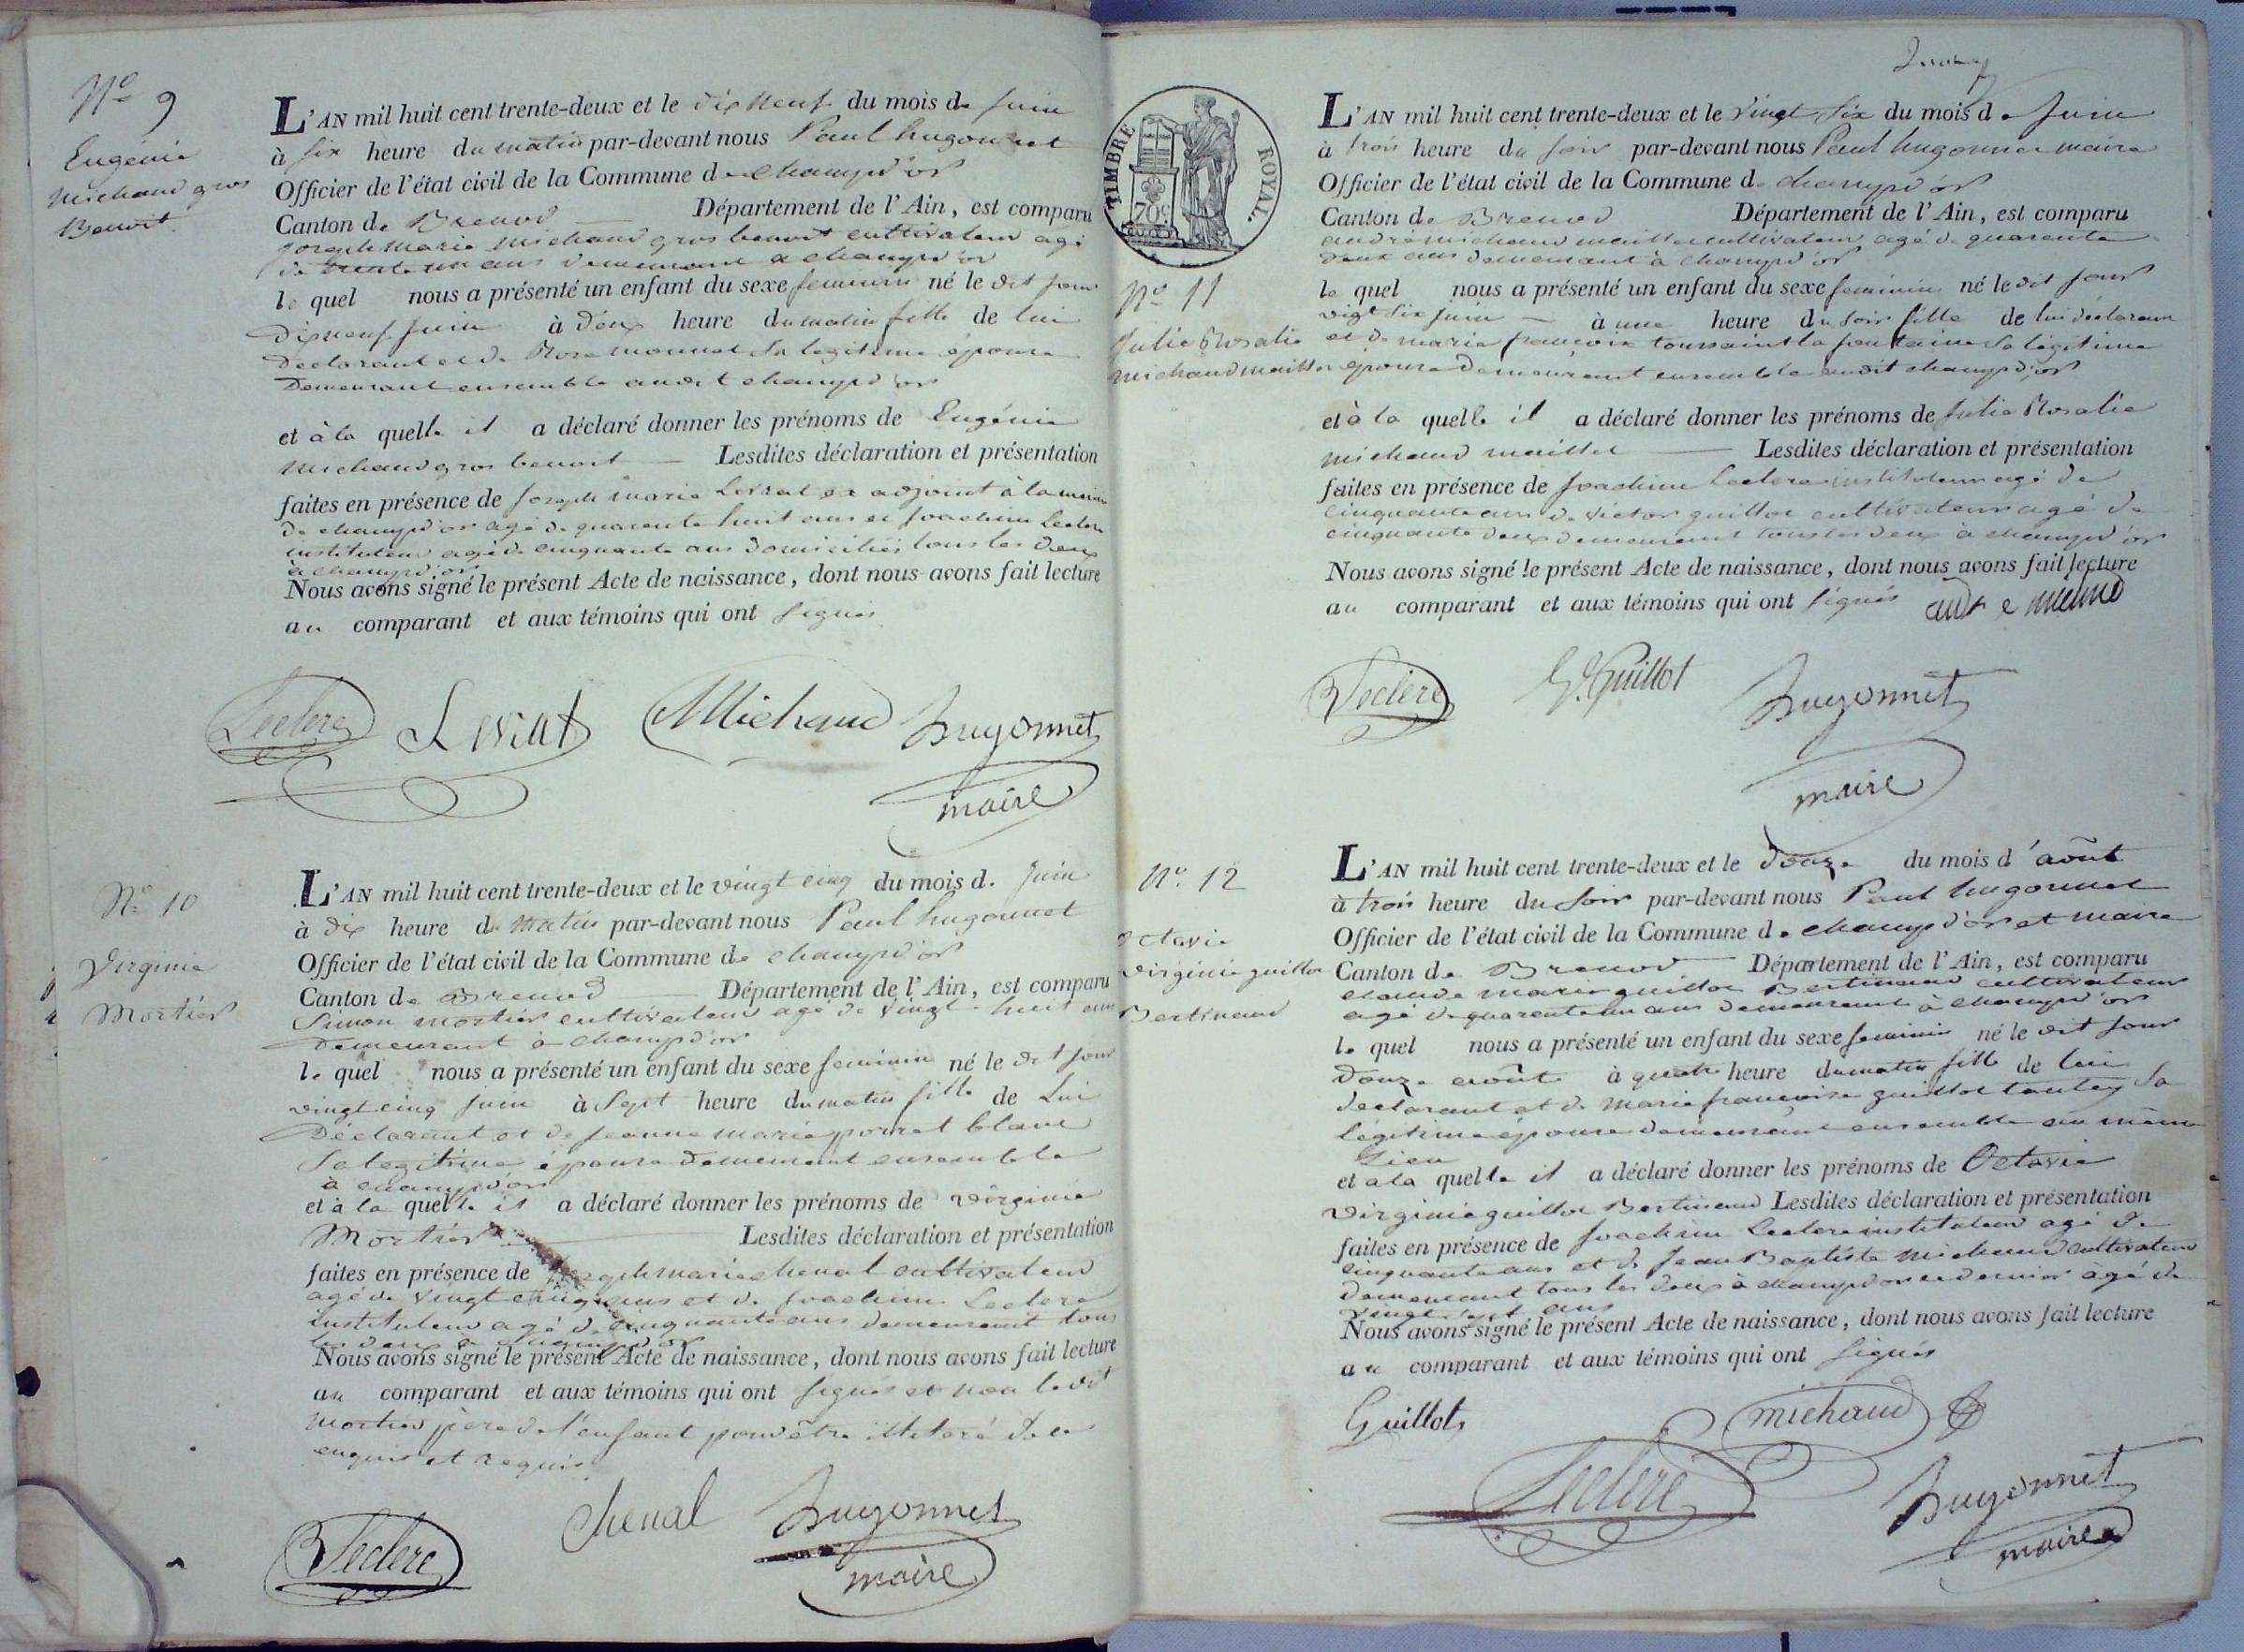 Nº 9
Eugénie
michaud gros
Benoit
L'AN mil huit cent trente-deux et le dix neuf du mois de juin
à six heure du matin par-devant nous Paul hugonnet
Officier de l'état civil de la Commune de champd'or
Canton de Brenod Département de l'Ain, est comparu
joseph marie michaud gros benoit cultivateur agé
de trente un ans demeurant a champd'or
le quel nous a présenté un enfant du sexe feminin né le dit jour
dix neuf juin à deux heure du matin fille de lui
declarant et de Rose monnet sa legitime épouse
demeurant ensemble audit champd'or
et à la quelle il a déclaré donner les prénoms de Eugénie
michaud gros benoit Lesdites déclaration et présentation
faites en présence de joseph marie Levrat ex adjoint à la mairie
de champd'or agé de quarante huit ans et joachim Leclere
instituteur agé de cinquante ans domiciliés tous les deux
à champd'or
Nous avons signé le présent Acte de naissance, dont nous avons fait lecture
au comparant et aux témoins qui ont signés
Leclere Levrat Michaud hugonnet
maire
Nº 10
Virginie
Mortier
L'AN mil huit cent trente-deux et le vingt cinq du mois de juin
à dix heure du matin par-devant nous Paul hugonnet
Officier de l'état civil de la Commune de champd'or
Canton de Brenod Département de l'Ain, est comparu
Simon mortier cultivateur agé de vingt huit ans
demeurant à champd'or
le quel nous a présenté un enfant du sexe feminin né le dit jour
vingt cinq juin à sept heure du matin fille de lui
Déclarant et de jeanne marie porret blanc
Sa legitime épouse demeurant ensemble
à champd'or
et à la quelle il a déclaré donner les prénoms de virginie
Mortier Lesdites déclaration et présentation
faites en présence de joseph marie chenal cultivateur
agé de vingt cinq ans et de joachim Leclere
instituteur agé de cinquante ans demeurant tous
les deux à champd'or
Nous avons signé le présent Acte de naissance, dont nous avons fait lecture
au comparant et aux témoins qui ont signés et non le dit
mortier père de l'enfant pour être illeteré de ce
enquis et requis
Leclere Chenal hugonnet
maire
TIMBRE ROYAL.
70c
Nº 11
Julie Rosalie
michaud maillet
L'AN mil huit cent trente-deux et le vingt six du mois de juin
à trois heure du soir par-devant nous Paul hugonnet maire
Officier de l'état civil de la Commune de champd'or
Canton de Brenod Département de l'Ain, est comparu
andré michaud maillet cultivateur agé de quarante
deux ans demeurant à champd'or
le quel nous a présenté un enfant du sexe feminin né le dit jour
vigt six juin à une heure du soir fille de lui déclarant
et de marie françoise toussaint la fontaine sa légitime
épouse demeurant ensemble audit champd'or
et à la quelle il a déclaré donner les prénoms de julie Rosalie
michaud maillet Lesdites déclaration et présentation
faites en présence de joachim Leclere instituteur agé de
cinquante ans de victor guillot cultivateur agé de
cinquante deux demeurant tous les deux à champd'or
Nous avons signé le présent Acte de naissance, dont nous avons fait lecture
au comparant et aux témoins qui ont signés
Leclere G. Guillot hugonnet
maire
Nº 12
octavie
virginie guillot
Bertinaud
L'AN mil huit cent trente-deux et le douze du mois d'août
à trois heure du soir par-devant nous Paul hugonnet
Officier de l'état civil de la Commune de champd'or et maire
Canton de Brenod Département de l'Ain, est comparu
claude marie guillot Bertinaud cultivateur
agé de quarante un ans demeurant à champd'or
le quel nous a présenté un enfant du sexe feminin né le dit jour
douze août à quatre heure du matin fille de lui
declarant et de marie françoise guillot tantey sa
légitime épouse demeurant ensemble au même
Lieu
et à la quelle il a déclaré donner les prénoms de Octavie
virginie guillot Bertinaud Lesdites déclaration et présentation
faites en présence de joachim Leclere instituteur agé de
cinquante ans et de jean Baptiste michaud cultivateur
demeurant tous les deux à champd'or ce dernier âgé de
vingt sept ans
Nous avons signé le présent Acte de naissance, dont nous avons fait lecture
au comparant et aux témoins qui ont signés
Guillot michaud
Leclere hugonnet
maire